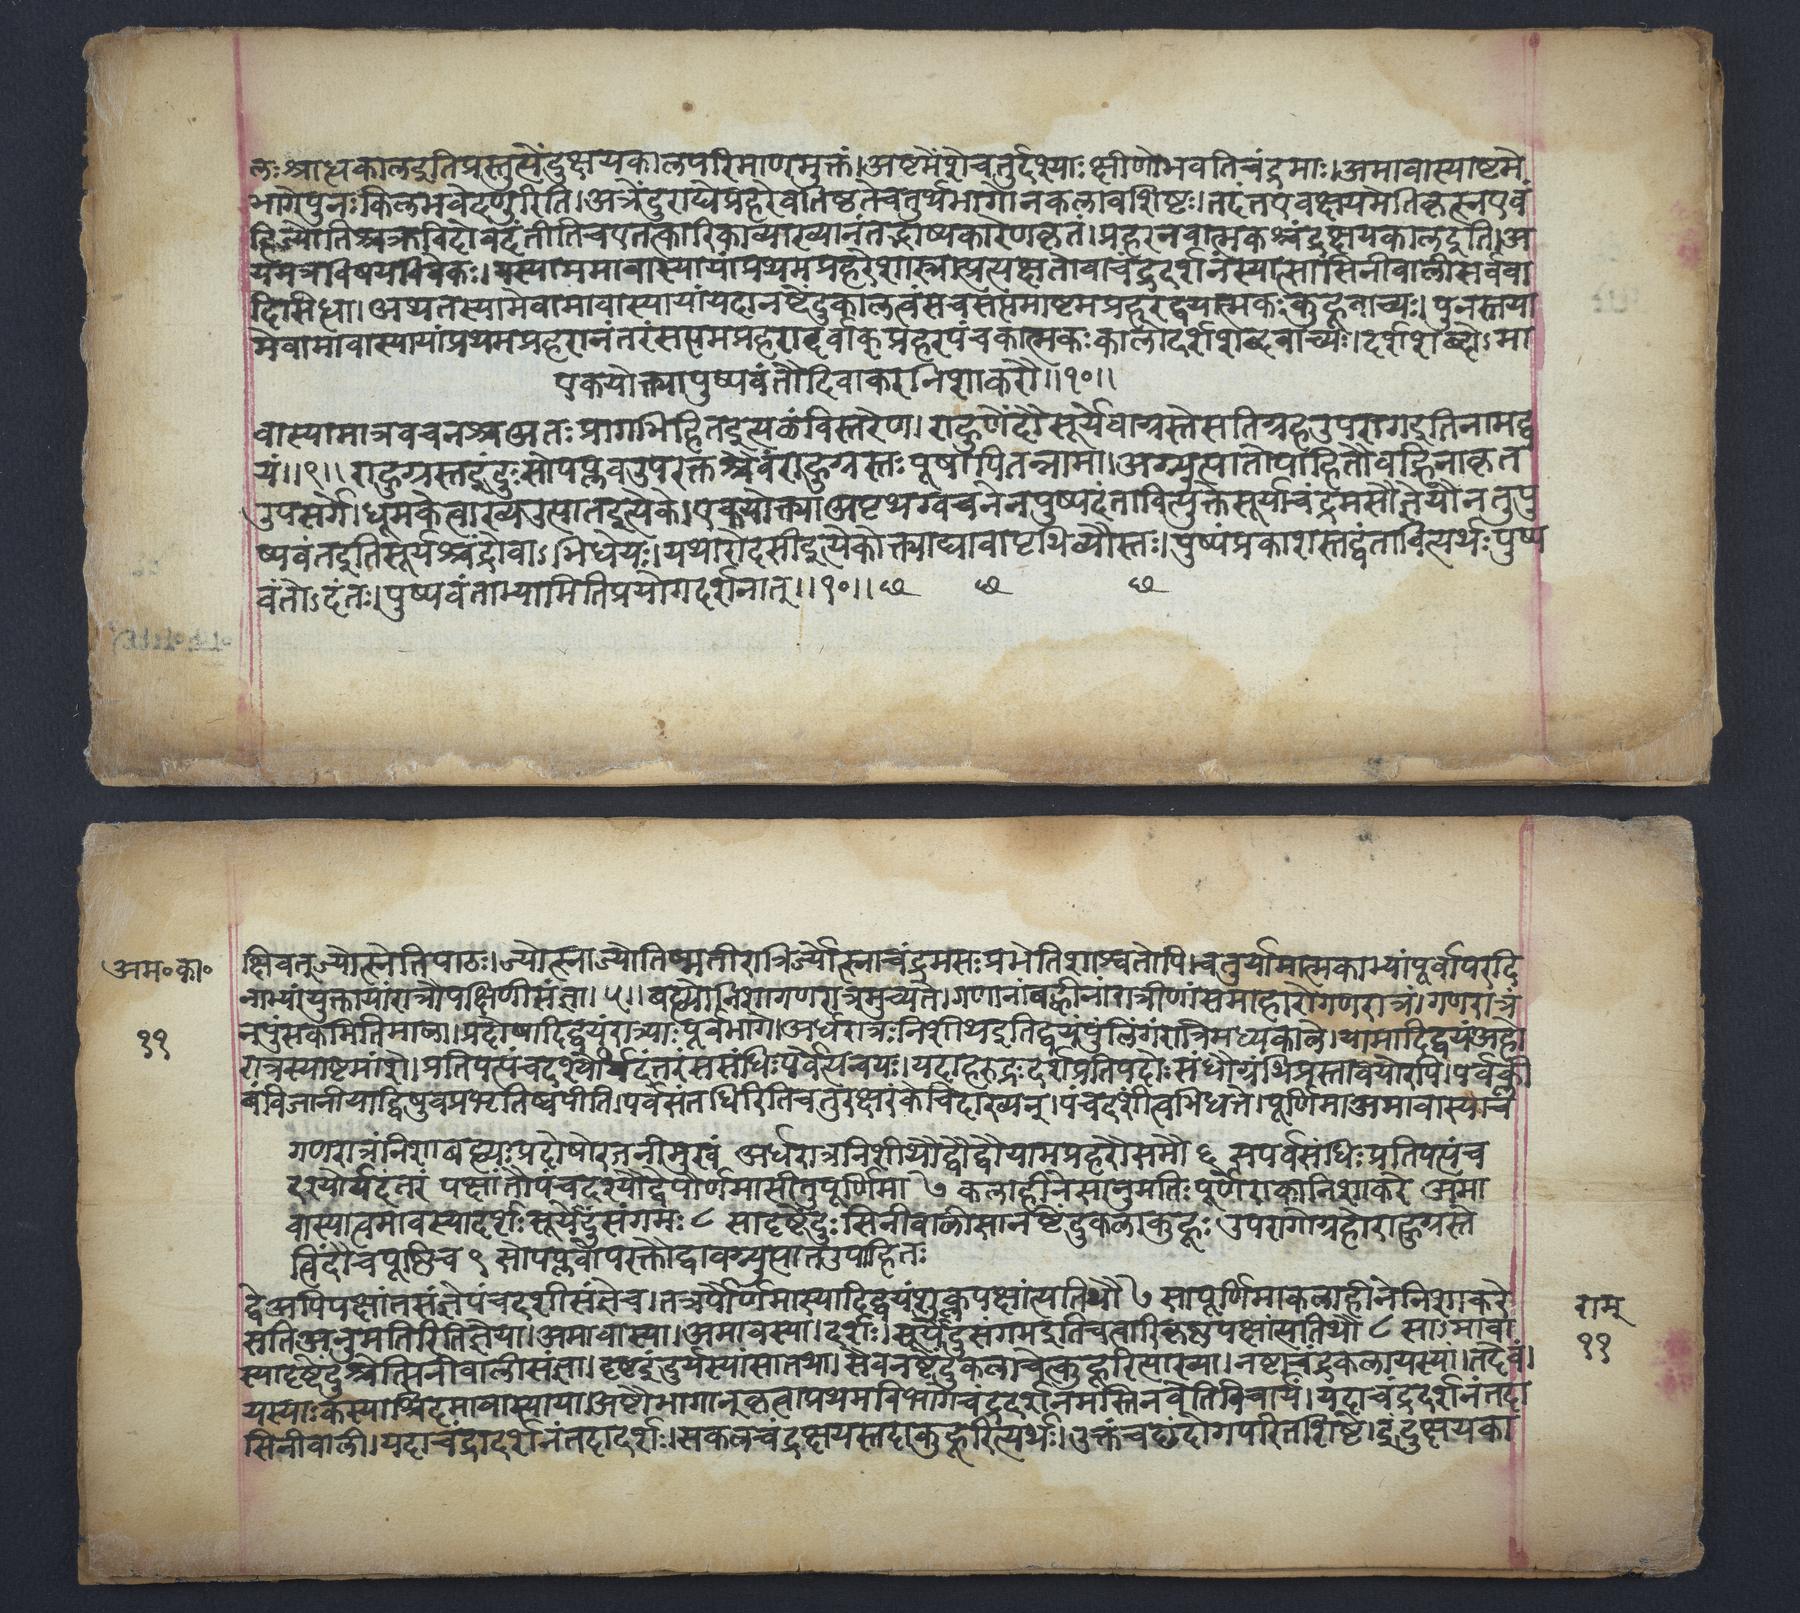 लः श्राद्धकालइतिप्रस्तुत्येंदुक्षयकालपरिमाणमुक्तं।अष्टमेंशेचतुर्दश्याःक्षीणोभवतिचंद्रमाः।अमावास्याष्टमे
भागेपुनःकिलभवेदणुरिति।अत्रेंदुराद्येप्रहरेवतिष्ठतेचतुर्थभागोनकलावशिष्टः।तदंतएवक्षयमेतिकृत्स्नएवं
हिज्योतिश्चक्रविदोवदंतीतिचएतत्कारिकाव्याख्यानंतद्भाष्यकारेणकृतं।प्रहरनवात्मकश्चंद्रक्षयकालइति।अ
यमत्रविषयविवेकः।यस्याममावास्यायांप्रथमप्रहरेशास्त्रात्प्रत्यक्षतोवाचंद्रदर्शनंस्यात्सासिनीवालीसर्ववा
दिसिधा।अथतस्यामेवामावास्यायांयदानष्टेंदुकालत्वंसचसप्तमाष्टमप्रहरद्वयात्मकःकुहूवाच्यः।पुनस्तया
मेवामावास्यायांप्रथमप्रहरानंतरंसप्तमप्रहरादर्वाक्प्रहरपंचकात्मकःकालोदर्शशब्दवाच्यः।दर्शशब्दोऽमा
एकयोक्त्यापुष्पवंतौदिवाकरनिशाकरौ॥१०॥
वास्यामात्रवचनश्चअतःप्रागभिहितइत्यलंविस्तरेण।राहुणेंदौसूर्येवाग्रस्तेसतिग्रहउपरागइतिनामद्व
यं॥९॥राहुग्रस्तइंदुःसोपप्लवउपरक्तश्चैवंराहुग्रस्तःपूषापितन्नामा।अग्न्युत्पातोपाहितौवह्निनाकृत
उपसर्गे।धूमकेत्वाख्यउत्पातइत्येके।एकयोक्त्याअपृथग्वचनेनपुष्पदंतावित्युक्तेसूर्याचंद्रमसौज्ञेयौनतुपु
ष्पवंतइतिसूर्यश्चंद्रोवाऽभिधेयः।यथारोदसीइत्येकोक्त्याद्यावापृथिव्यौस्तः।पुष्पंप्रकाशस्तद्वंतावित्यर्थःपुष्प
वंतोऽदंतः।पुष्पवंताभ्यामितिप्रयोगदर्शनात्॥१०॥छ छ छ
अम॰का॰
११
क्षिवतुज्योत्स्नेतिपाठः।ज्योत्स्नाज्योतिष्मतीरात्रिर्ज्योत्स्नाचंद्रमसःप्रभेतिशाश्वतोपि।चतुर्यामात्मकाभ्यांपूर्वापरदि
नाभ्यांयुक्तायांरात्रौपक्षिणीसंज्ञा।५॥बह्व्योनिशागणरात्रमुच्यते।गणानांबह्वीनांरात्रीणांसमाहारोगणरात्रं।गणरात्रं
नपुंसकमितिमाला।प्रदोषादिद्वयंरात्र्याःपूर्वभागे।अर्धरात्रःनिशीथइतिद्वयंपुंलिंगंरात्रिमध्यकाले।यामादिद्वयंअहो
रात्रस्याष्टमांशे।प्रतिपत्पंचदश्योर्यदंतरंससंधिःपर्वेत्यन्वयः।यदाहरुद्रःदर्शप्रतिपदोःसंधौग्रंथिप्रस्तावयोरपि।पर्वक्ली
बंविजानीयाद्विषुवप्रभृतिष्वपीति।पर्वसंतधिरितिचतुरक्षरंकेचिदाख्यन्।पंचदशीत्वभिधत्ते।पूर्णिमाअमावास्यांच
गणरात्रंनिशाबह्व्यःप्रदोषोरजनीमुखं अर्धरात्रनिशीथौद्वौद्वौयामप्रहरौसमौ ६ सपर्वसंधिःप्रतिपत्पंच
दश्योर्यदंतरं पक्षांतौपंचदश्यौद्वेपौर्णमासीतुपूर्णिमा ७ कलाहीनेसानुमतिःपूर्णेराकानिशाकरे अमा
वास्यात्वमावस्यादर्शःसूर्येंदुसंगमः ८ सादृष्टेंदुःसिनीवालीसानष्टेंदुकलाकुहूः उपरागोग्रहोराहुग्रस्ते
त्विंदौचपूष्णिच ९ सोपप्लवोपरक्तौद्वावग्न्युत्पातउपाहितः
द्वेअपिपक्षांतसंज्ञेपंचदशीसंज्ञेच।तत्रपौर्णमास्यादिद्वयंशुक्लपक्षांत्यतिथौ ७ सापूर्णिमाकलाहीनेनिशाकरे
सतिअनुमतिरितिज्ञेया।अमावास्या।अमावस्या।दर्शः।सूर्येंदुसंगमइतिचत्वारिकृष्णपक्षांत्यतिथौ ८ साऽमावा
स्यादृष्टेंदुश्चेत्सिनीवालीसंज्ञा।दृष्टइंदुर्यस्यांसातथा।सैवनष्टेंदुकलाचेत्कुहूरित्याख्या।नष्टाचंद्रकलायस्यां।तदेवं।
यस्याःकस्याश्चिदमावास्याया।अष्टौभागान्कृत्वाप्रथमविभागेचंद्रदर्शनमस्तिनवेतिविचार्यं।यदाचंद्रदर्शनंतदा
सिनीवाली।यदाचंद्रादर्शनंतदादर्शः।सकलचंद्रक्षयस्तदाकुहूरित्यर्थः।उक्तंचछंदोगपरितशिष्टे।इंदुक्षयका
राम्
११